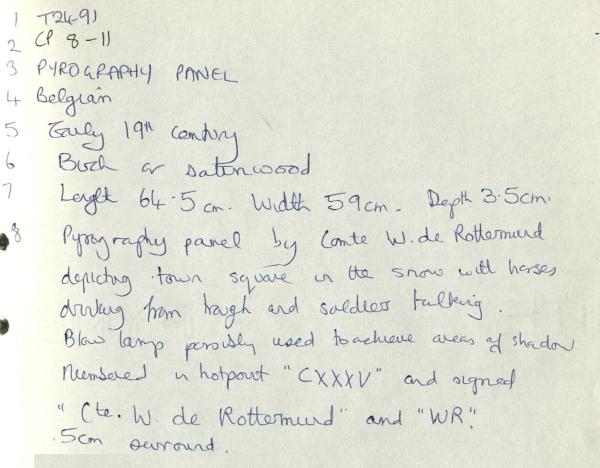 1 T24-91
2 CP 8-11
3 PYROGRAPHY PANEL
4 Belgian
5 Early 19th century
6 Birch or satinwood
7 Lenght 64.5 cm. Width 59cm. Depth 3.5cm.
8 Pyrography panel by Comte W. de Rottermund
depicting town square in the snow with horses
drinking from trough and soldiers talking.
Blow lamp possibly used to achieve areas of shadow
Numbered in hotpoint "CXXXV" and signed
"Cte. W. de Rottermund" and "WR".
.5cm surround.